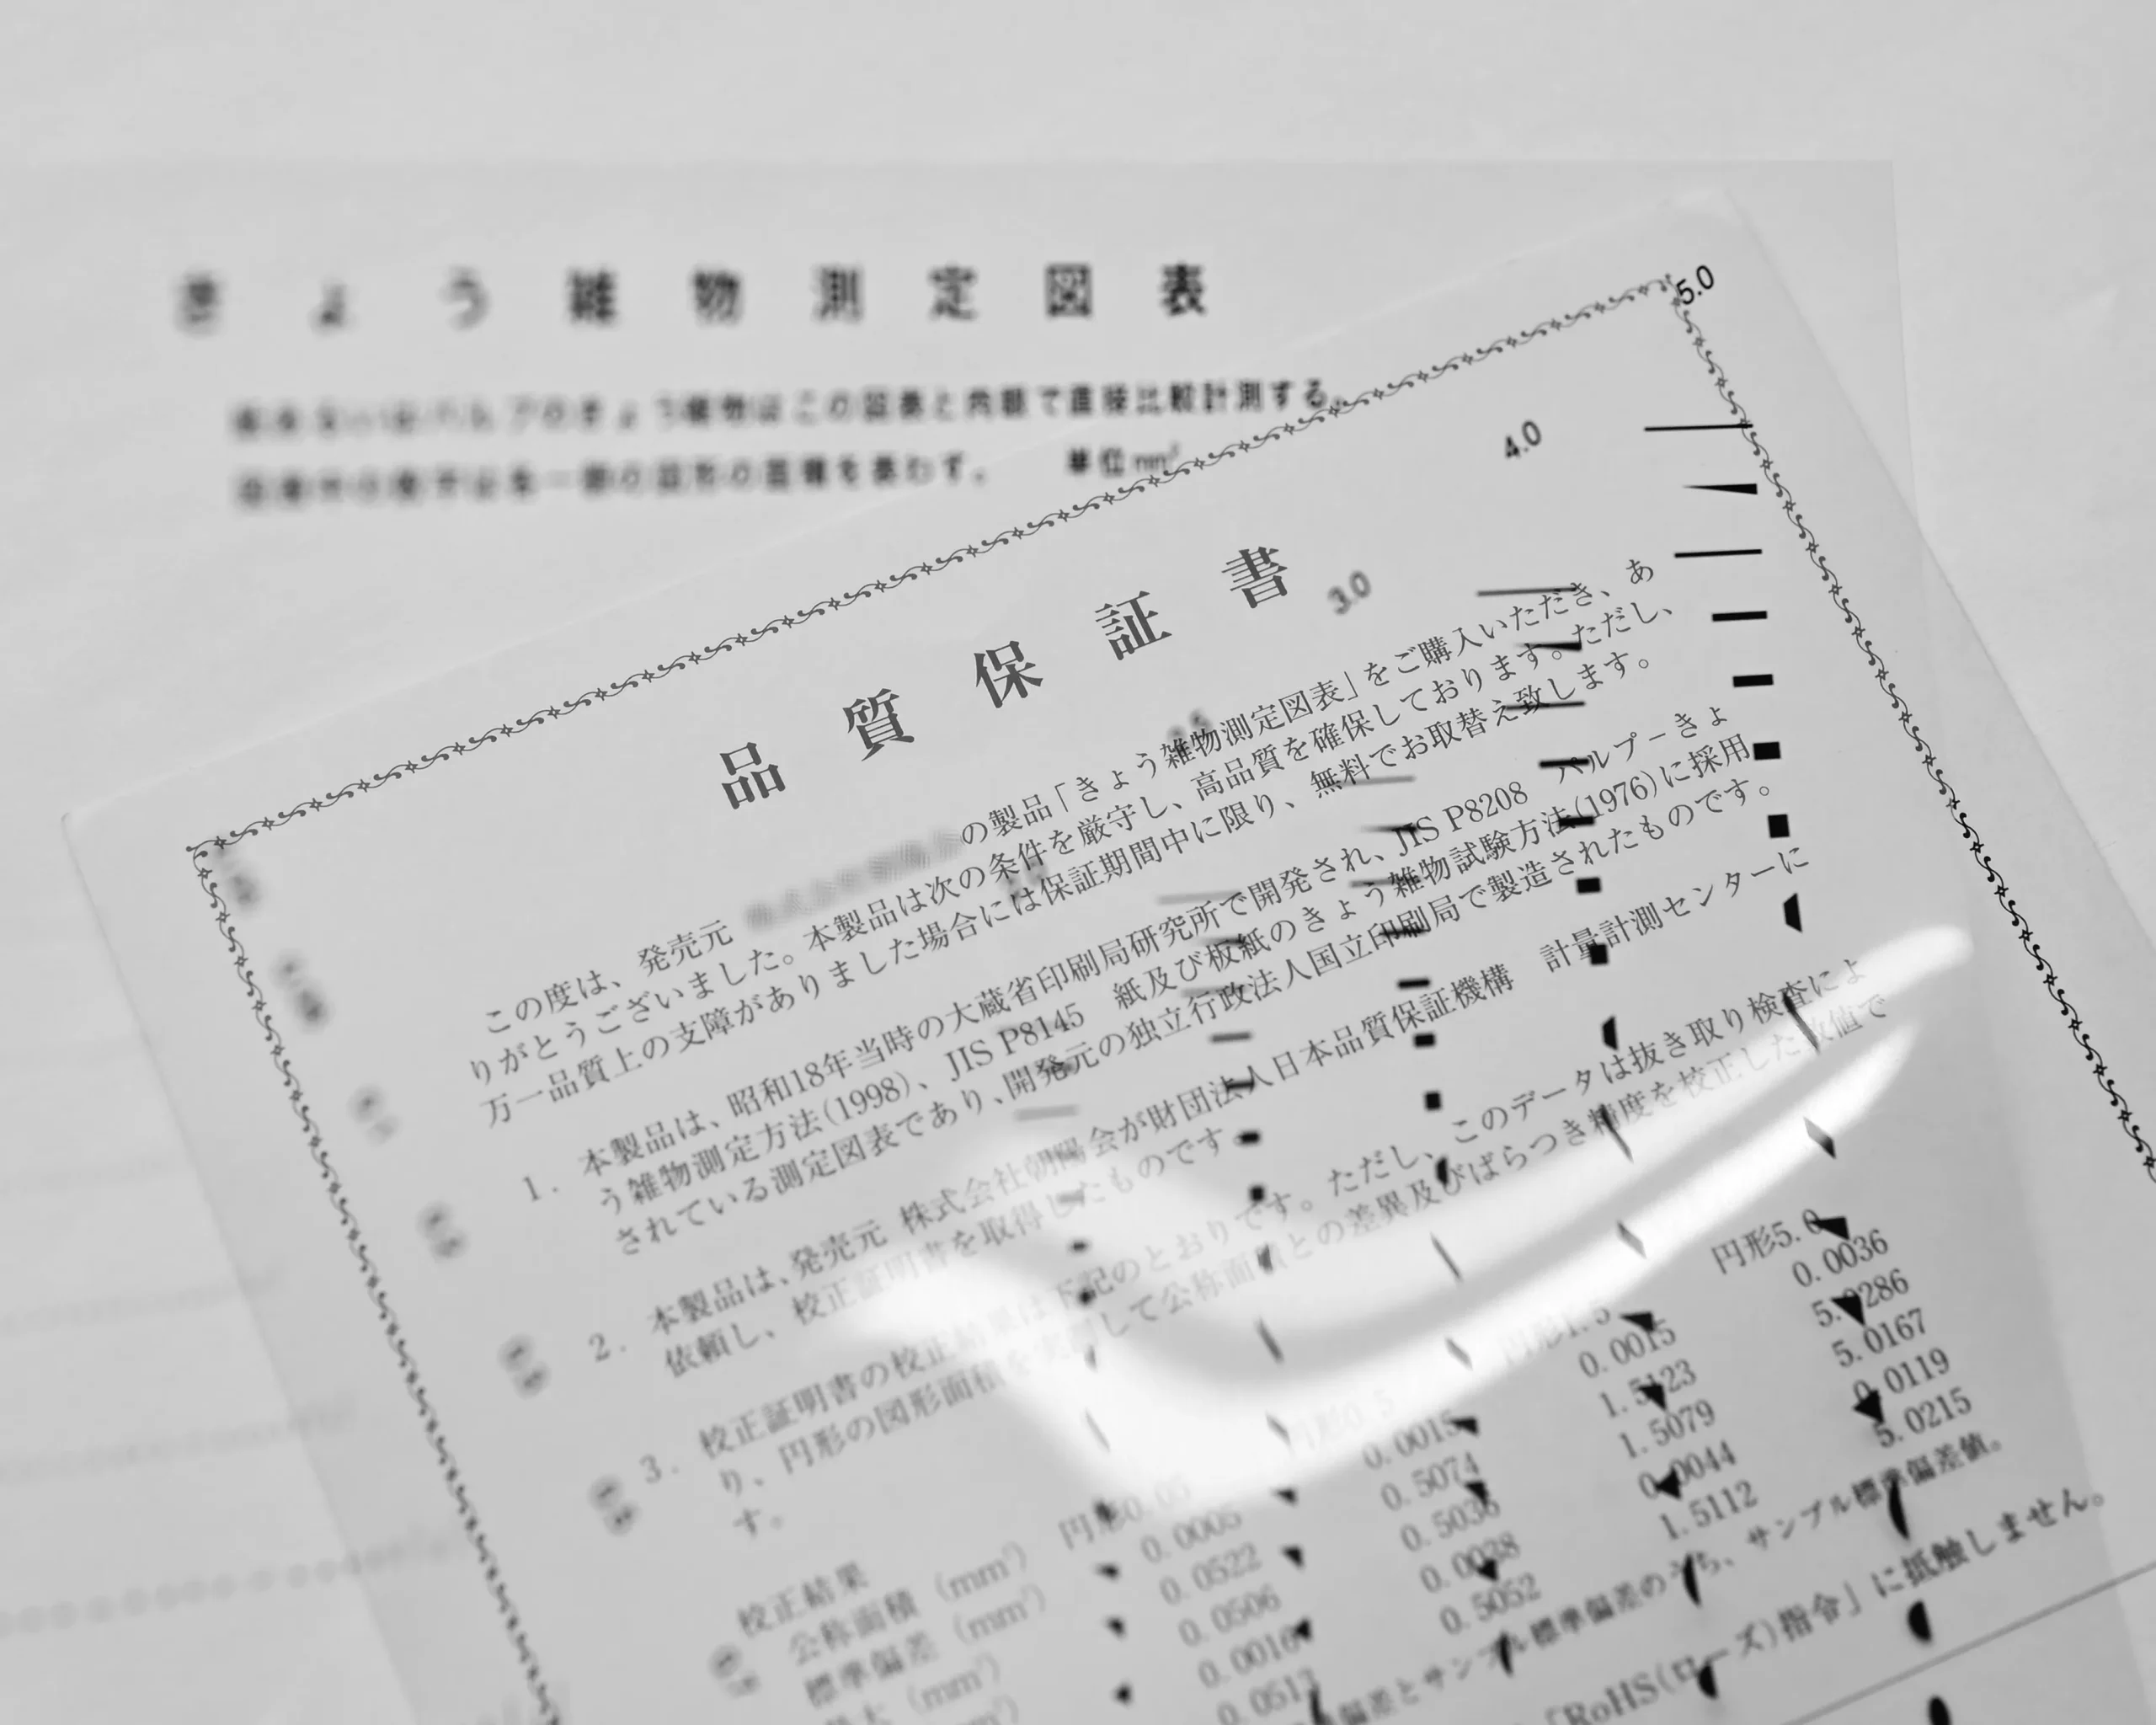 きょう雑物測定図表
この図表と肉眼で直接比較計測する。
の図形の面積を表わす。 単位㎟
5.0
4.0
3.0
品質保証書
この度は、発売元 の製品「きょう雑物測定図表」をご購入いただき、あ
りがとうございました。本製品は次の条件を厳守し、高品質を確保しております。ただし、
万一品質上の支障がありました場合には保証期間中に限り、無料でお取替え致します。
1. 本製品は、昭和18年当時の大蔵省印刷局研究所で開発され、JIS P8208 パルプ－きょ
う雑物測定方法(1998)、JIS P8145 紙及び板紙のきょう雑物試験方法(1976)に採用
されている測定図表であり、開発元の独立行政法人国立印刷局で製造されたものです。
2. 本製品は、発売元 株式会社朝陽会が財団法人日本品質保証機構 計量計測センターに
依頼し、校正証明書を取得したものです。
3. 校正証明書の校正結果は下記のとおりです。ただし、このデータは抜き取り検査によ
り、円形の図形面積を実測して公称面積との差異及びばらつき精度を校正した数値で
す。
校正結果
公称面積（mm²） 円形0.05 円形0.5 円形1.5 円形5.0
標準偏差（mm²） 0.0005 0.0015 0.0015 0.0036
最大（mm²） 0.0522 0.5074 1.5123 5.0286
0.0506 0.5036 1.5079 5.0167
0.0016 0.0038 0.0044 0.0119
0.0513 0.5052 1.5112 5.0215
偏差とサンプル標準偏差のうち、サンプル標準偏差値。
「RoHS(ローズ)指令」に抵触しません。